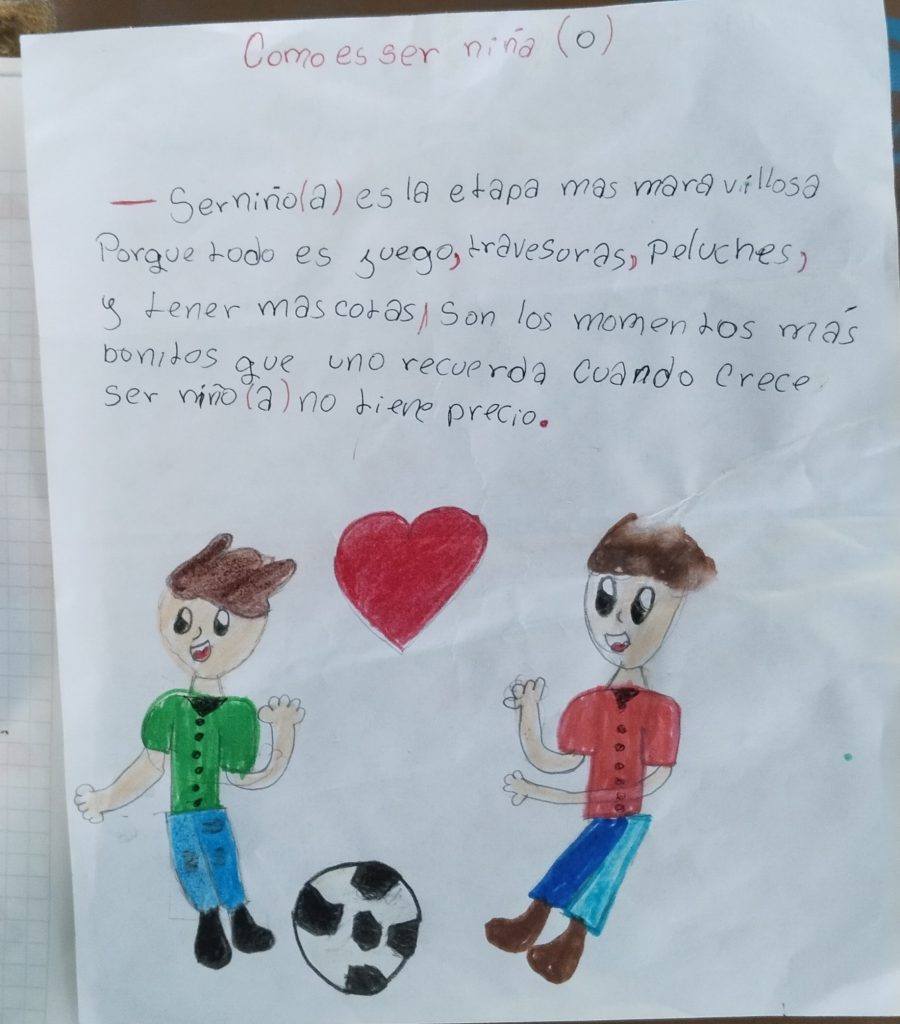 Como es ser niña (o)
— Ser niño(a) es la etapa mas maravillosa
Porque todo es juego, travesoras, Peluches,
y tener mascotas, Son los momentos más
bonitos que uno recuerda cuando crece
ser niño(a) no tiene precio.